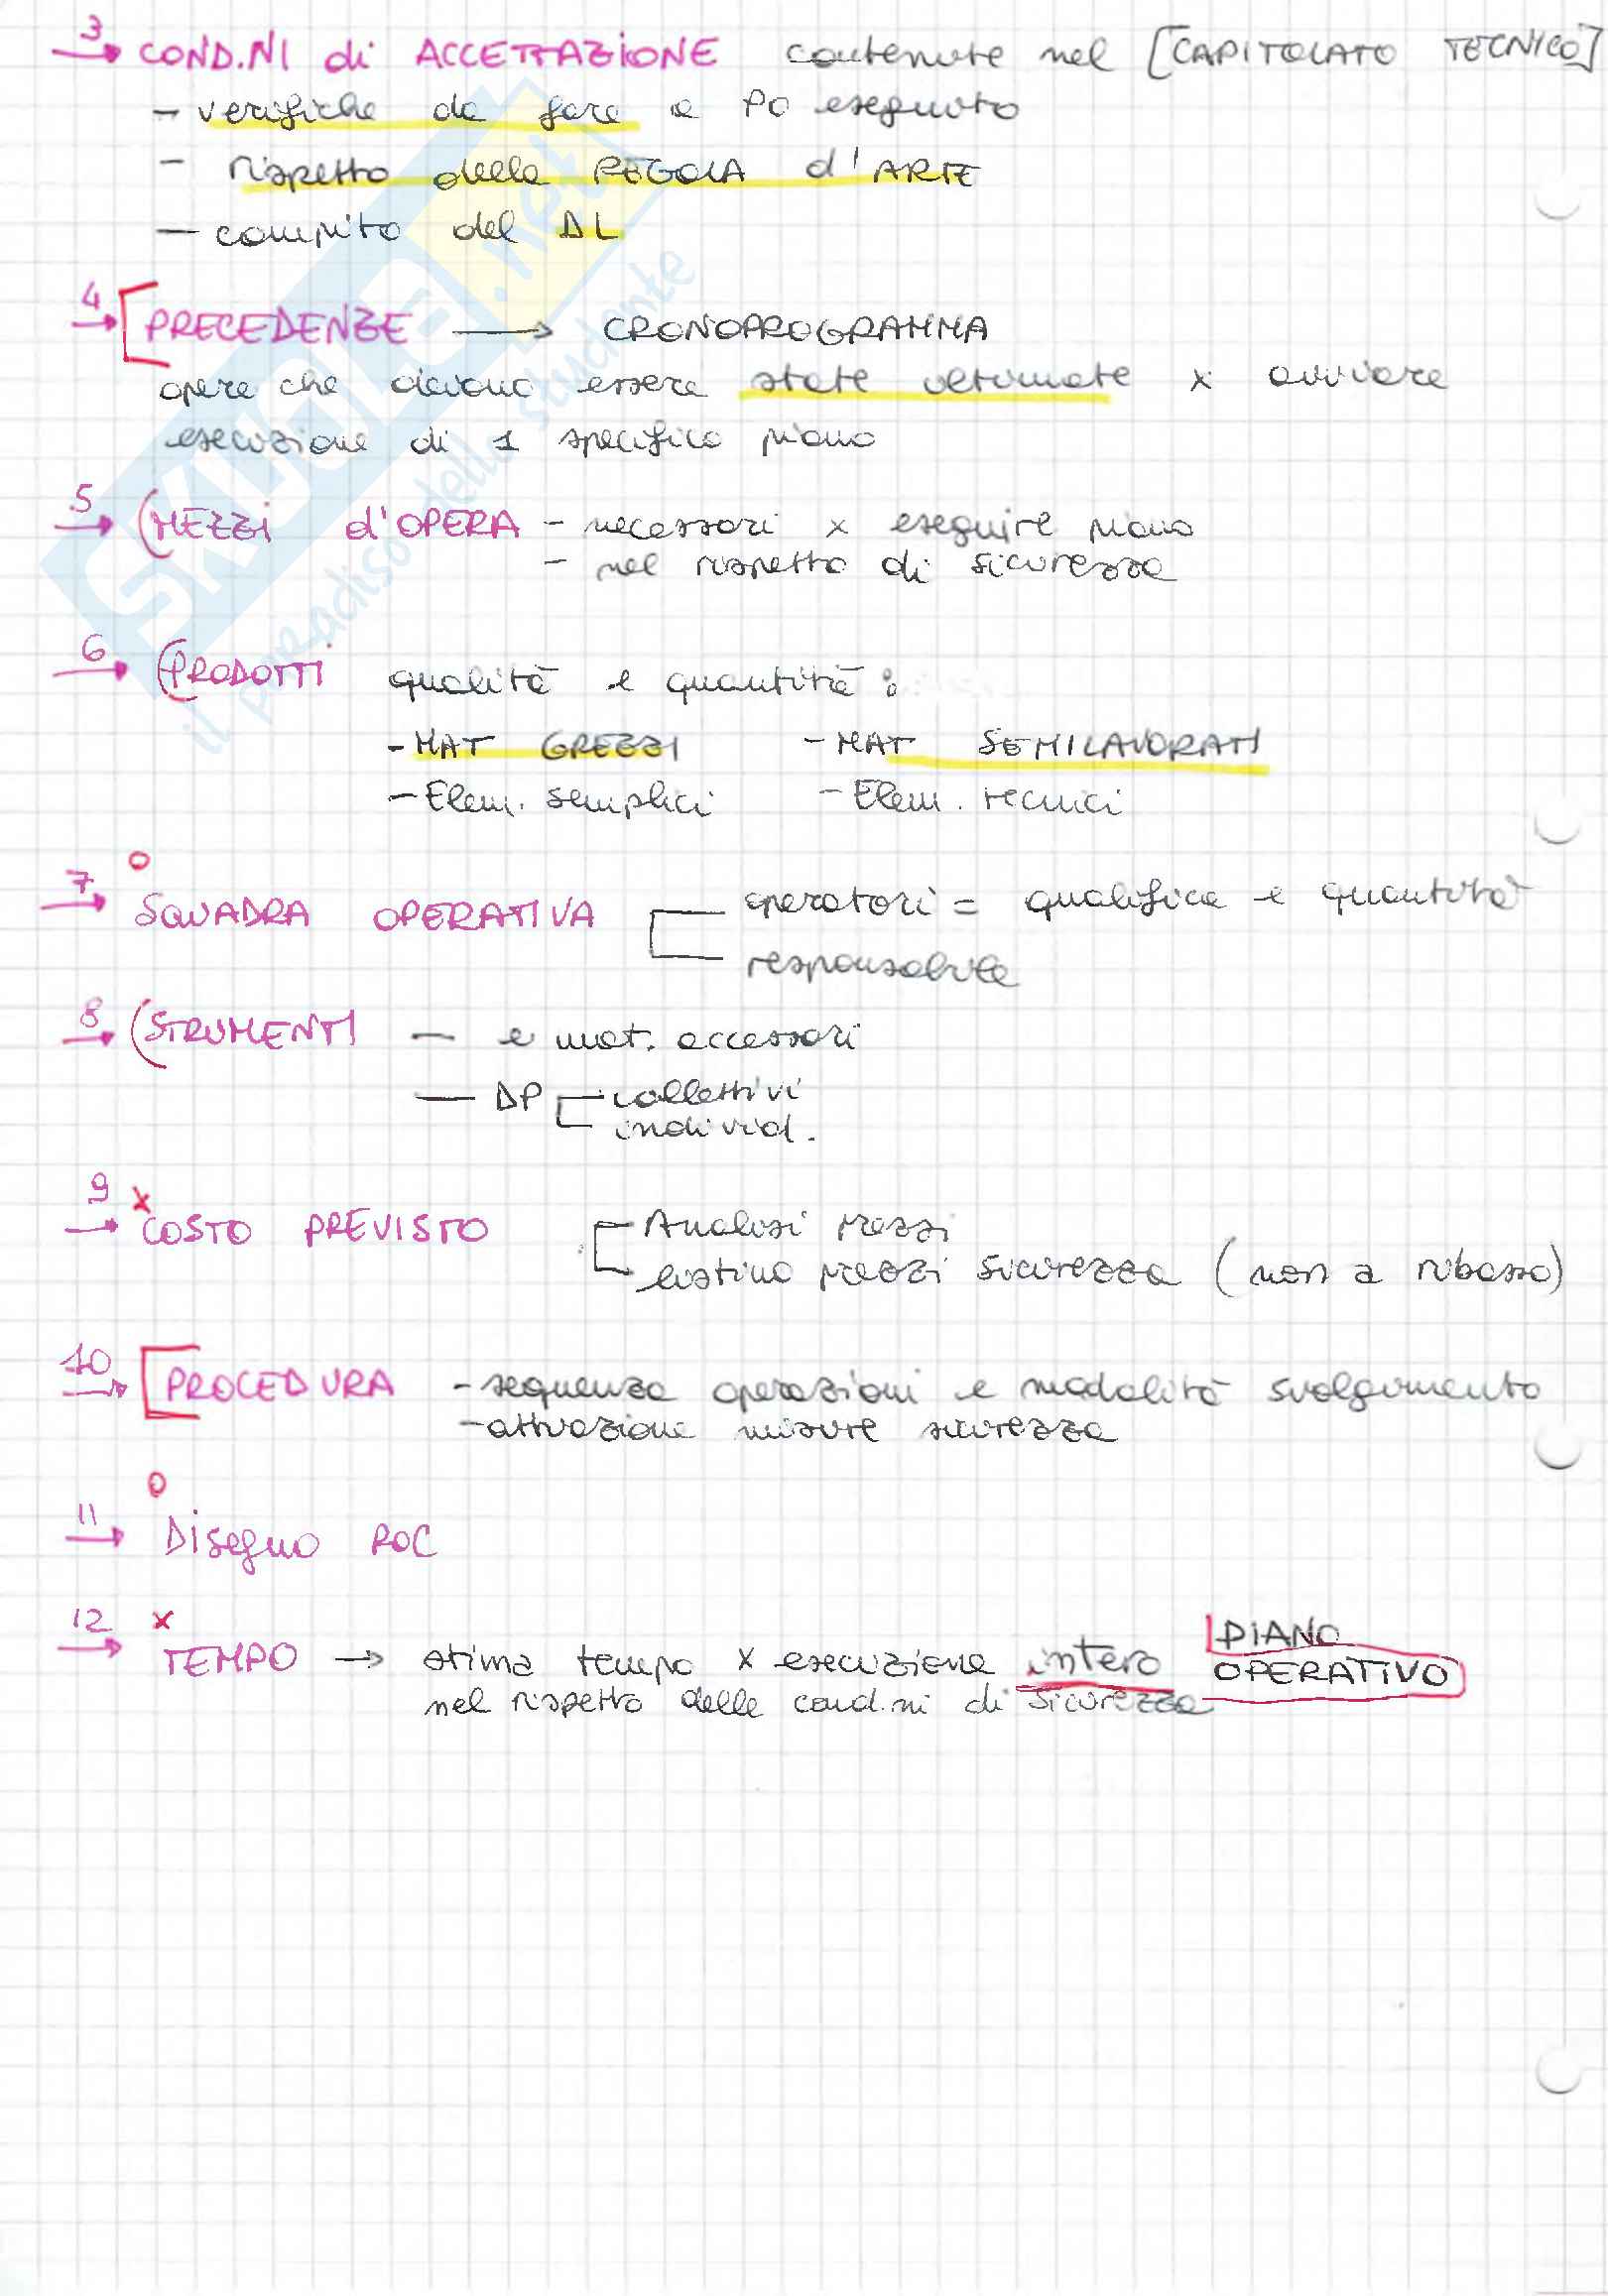 3 → COND.NI di ACCETTAZIONE contenute nel [CAPITOLATO TECNICO]
- verifiche da fare a PO eseguito
- rispetto della REGOLA d'ARTE
- compito del DL
4 → PRECEDENZE → CRONOPROGRAMMA
opere che devono essere state ultimate x avviare
esecuzione di 1 specifico piano
5 → (MEZZI d'OPERA - necessari x eseguire piano
- nel rispetto di sicurezza
6 → (PRODOTTI qualità e quantità:
- MAT GREZZI - MAT SEMILAVORATI
- Elem. semplici - Elem. tecnici
7 → SQUADRA OPERATIVA operatori = qualifica e quantità
responsabile
8 → (STRUMENTI - e mat. accessori
- DP collettivi
individ.
9 → x COSTO PREVISTO Analisi prezzi
listino prezzi sicurezza (non a ribasso)
10 → [PROCEDURA - sequenza operazioni e modalità svolgimento
- attuazione misure sicurezza
11 → Disegno POC
12 → x TEMPO → stima tempo x esecuzione intero PIANO OPERATIVO
nel rispetto delle cond.ni di sicurezza
SKUOLA.net
il paradiso dello studente